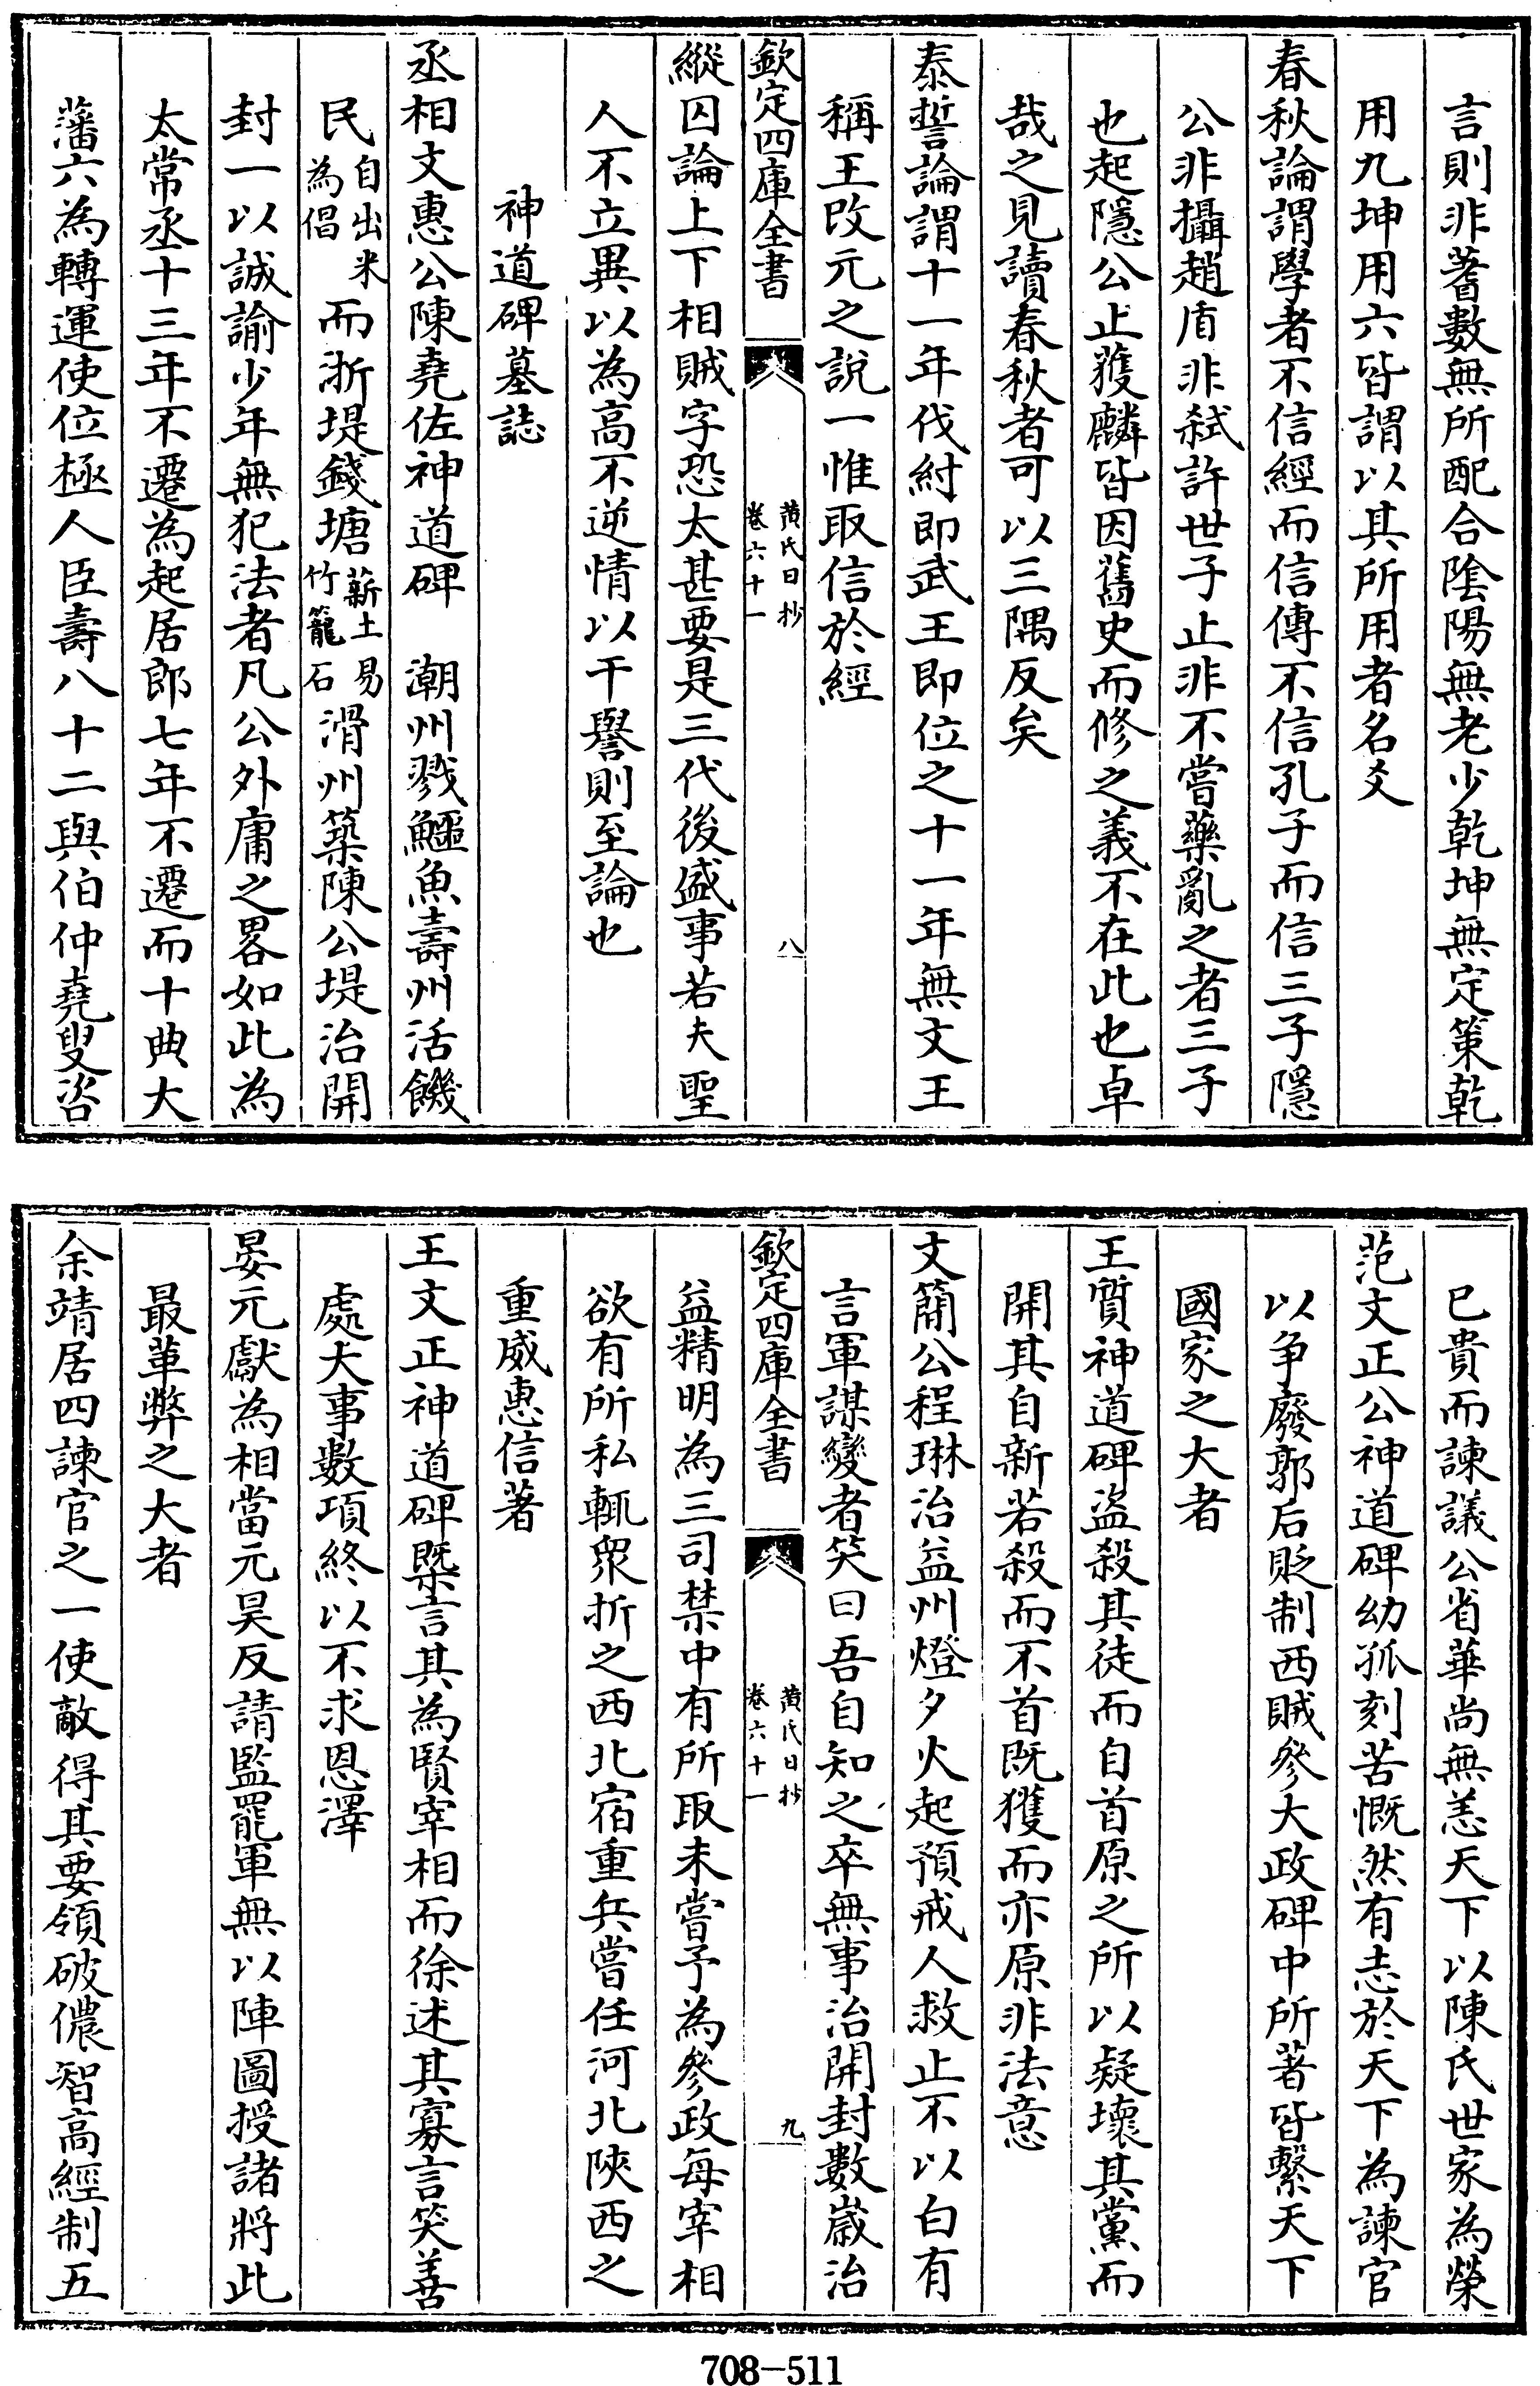 言則非蓍數無所配合陰陽無老少乾坤無定策乾
用九坤用六皆謂以其所用者名爻
春秋論謂學者不信經而信傳不信孔子而信三子隱
公非攝趙盾非弑許世子止非不嘗藥亂之者三子
也起隱公止獲麟皆因舊史而修之義不在此也卓
哉之見讀春秋者可以三隅反矣
泰誓論謂十一年伐紂即武王即位之十一年無文王
稱王改元之說一惟取信於經
欽定四庫全書
黃氏日抄
卷六十一
八
縱囚論上下相賊字恐太甚要是三代後盛事若夫聖
人不立異以為高不逆情以干譽則至論也
神道碑墓誌
丞相文惠公陳堯佐神道碑 潮州戮鱷魚壽州活饑
民自出米為倡而浙堤錢塘薪土易竹籠石滑州築陳公堤治開
封一以誠諭少年無犯法者凡公外庸之畧如此為
太常丞十三年不遷為起居郎七年不遷而十典大
藩六為轉運使位極人臣壽八十二與伯仲堯叟咨
已貴而諫議公省華尚無恙天下以陳氏世家為榮
范文正公神道碑幼孤刻苦慨然有志於天下為諫官
以争廢郭后貶制西賊參大政碑中所著皆繫天下
國家之大者
王質神道碑盗殺其徒而自首原之所以疑壞其黨而
開其自新若殺而不首既獲而亦原非法意
文簡公程琳治益州燈夕火起預戒人救止不以白有
言軍謀變者笑曰吾自知之卒無事治開封數嵗治
欽定四庫全書
黃氏日抄
卷六十一
九
益精明為三司禁中有所取未嘗予為參政每宰相
欲有所私輒衆折之西北宿重兵嘗任河北陝西之
重威惠信著
王文正神道碑槩言其為賢宰相而徐述其寡言笑善
處大事數項終以不求恩澤
晏元獻為相當元昊反請監罷軍無以陣圖授諸將此
最革弊之大者
余靖居四諫官之一使敵得其要領破儂智高經制五
708-511